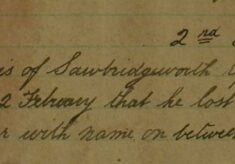 2nd
is of Sawbridgeworth
2 February that he lost
r with name on betwee